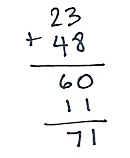 23
+ 48
60
11
71